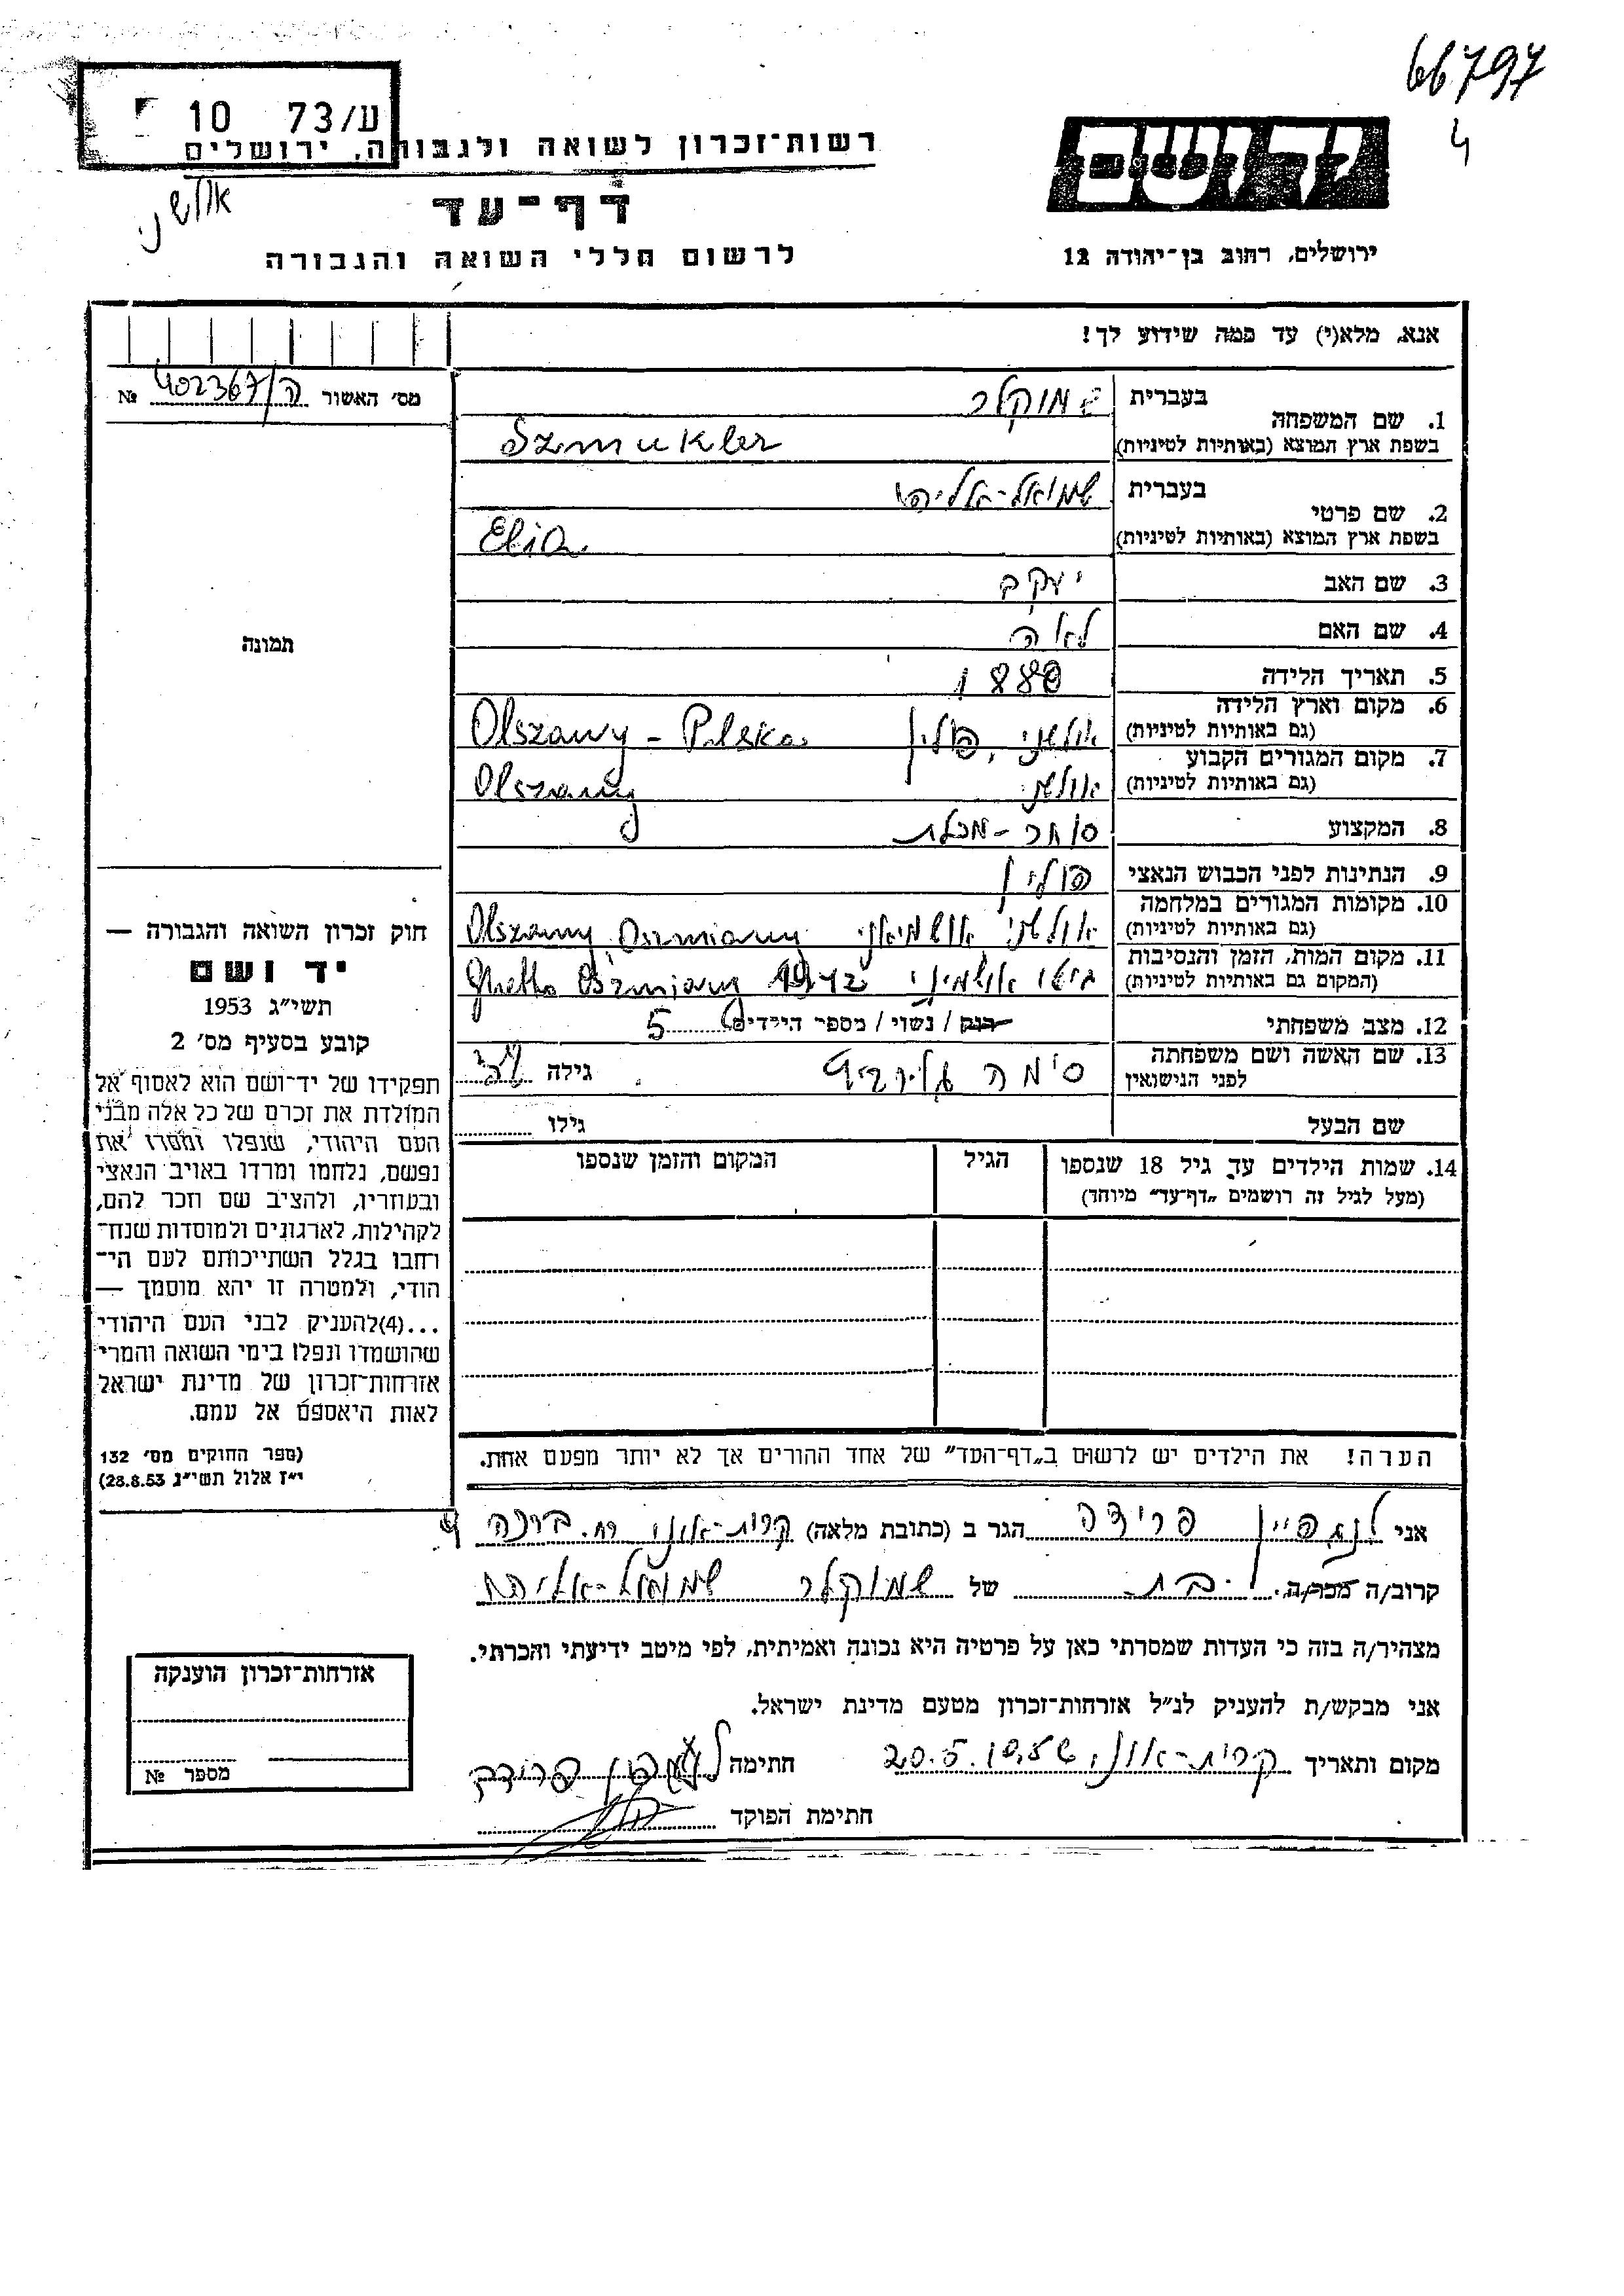 66797
4
ע/73 10
רשות־זכרון לשואה ולגבורה, ירושלים
אולשני
דף־עד
לרשום חללי השואה והגבורה
יד ושם
ירושלים, רחוב בן־יהודה 12
אנא, מלא(י) עד כמה שידוע לך!
מס׳ האשור ה/402367 №
1. שם המשפחה
בעברית שמוקלר
בשפת ארץ המוצא (באותיות לטיניות) Szmukler
2. שם פרטי
בעברית שמואל-אליהו
בשפת ארץ המוצא (באותיות לטיניות) Elia
3. שם האב יעקב
4. שם האם לאה
5. תאריך הלידה 1880
6. מקום וארץ הלידה
(גם באותיות לטיניות) אולשני, פולין Olszany - Polska
7. מקום המגורים הקבוע
(גם באותיות לטיניות) אולשני Olszany
8. המקצוע סוחר - מכלת
9. הנתינות לפני הכבוש הנאצי פולין
10. מקומות המגורים במלחמה
(גם באותיות לטיניות) אולשני אושמיאני Olszany, Oszmiany
11. מקום המות, הזמן והנסיבות
(המקום גם באותיות לטיניות) גיטו אושמיני 1942 Ghetto Oszmiany
12. מצב משפחתי רווק / נשוי / מספר הילדים 5
13. שם האשה ושם משפחתה
לפני הנישואין סימה גילה
שם הבעל גילו
14. שמות הילדים עד גיל 18 שנספו הגיל המקום והזמן שנספו
(מעל לגיל זה רושמים „דף־עד״ מיוחד)
הערה! את הילדים יש לרשום ב„דף־העד״ של אחד ההורים אך לא יותר מפעם אחת.
תמונה
חוק זכרון השואה והגבורה —
יד ושם
תשי״ג 1953
קובע בסעיף מס׳ 2
תפקידו של יד־ושם הוא לאסוף אל
המולדת את זכרם של כל אלה מבני
העם היהודי, שנפלו ומסרו את
נפשם, נלחמו ומרדו באויב הנאצי
ובעוזריו, ולהציב שם וזכר להם,
לקהילות, לארגונים ולמוסדות שנח־
רחבו בגלל השתייכותם לעם הי־
הודי, ולמטרה זו יהא מוסמך —
...(4) להעניק לבני העם היהודי
שהושמדו ונפלו בימי השואה והמרי
אזרחות־זכרון של מדינת ישראל
לאות היאספם אל עמם.
(ספר החוקים מס׳ 132
י״ז אלול תשי״ג 28.8.53)
אני פרידה הגר ב (כתובת מלאה) קרית-אונו רח. ברכה 9
קרוב/ה מכר/ה. בת של שמוקלר שמואל-אליהו
מצהיר/ה בזה כי העדות שמסרתי כאן על פרטיה היא נכונה ואמיתית, לפי מיטב ידיעתי והכרתי.
אני מבקש/ת להעניק לנ״ל אזרחות־זכרון מטעם מדינת ישראל.
מקום ותאריך קרית-אונו, 20.5.1956 חתימה פרידה
חתימת הפוקד
אזרחות־זכרון הוענקה
מספר №